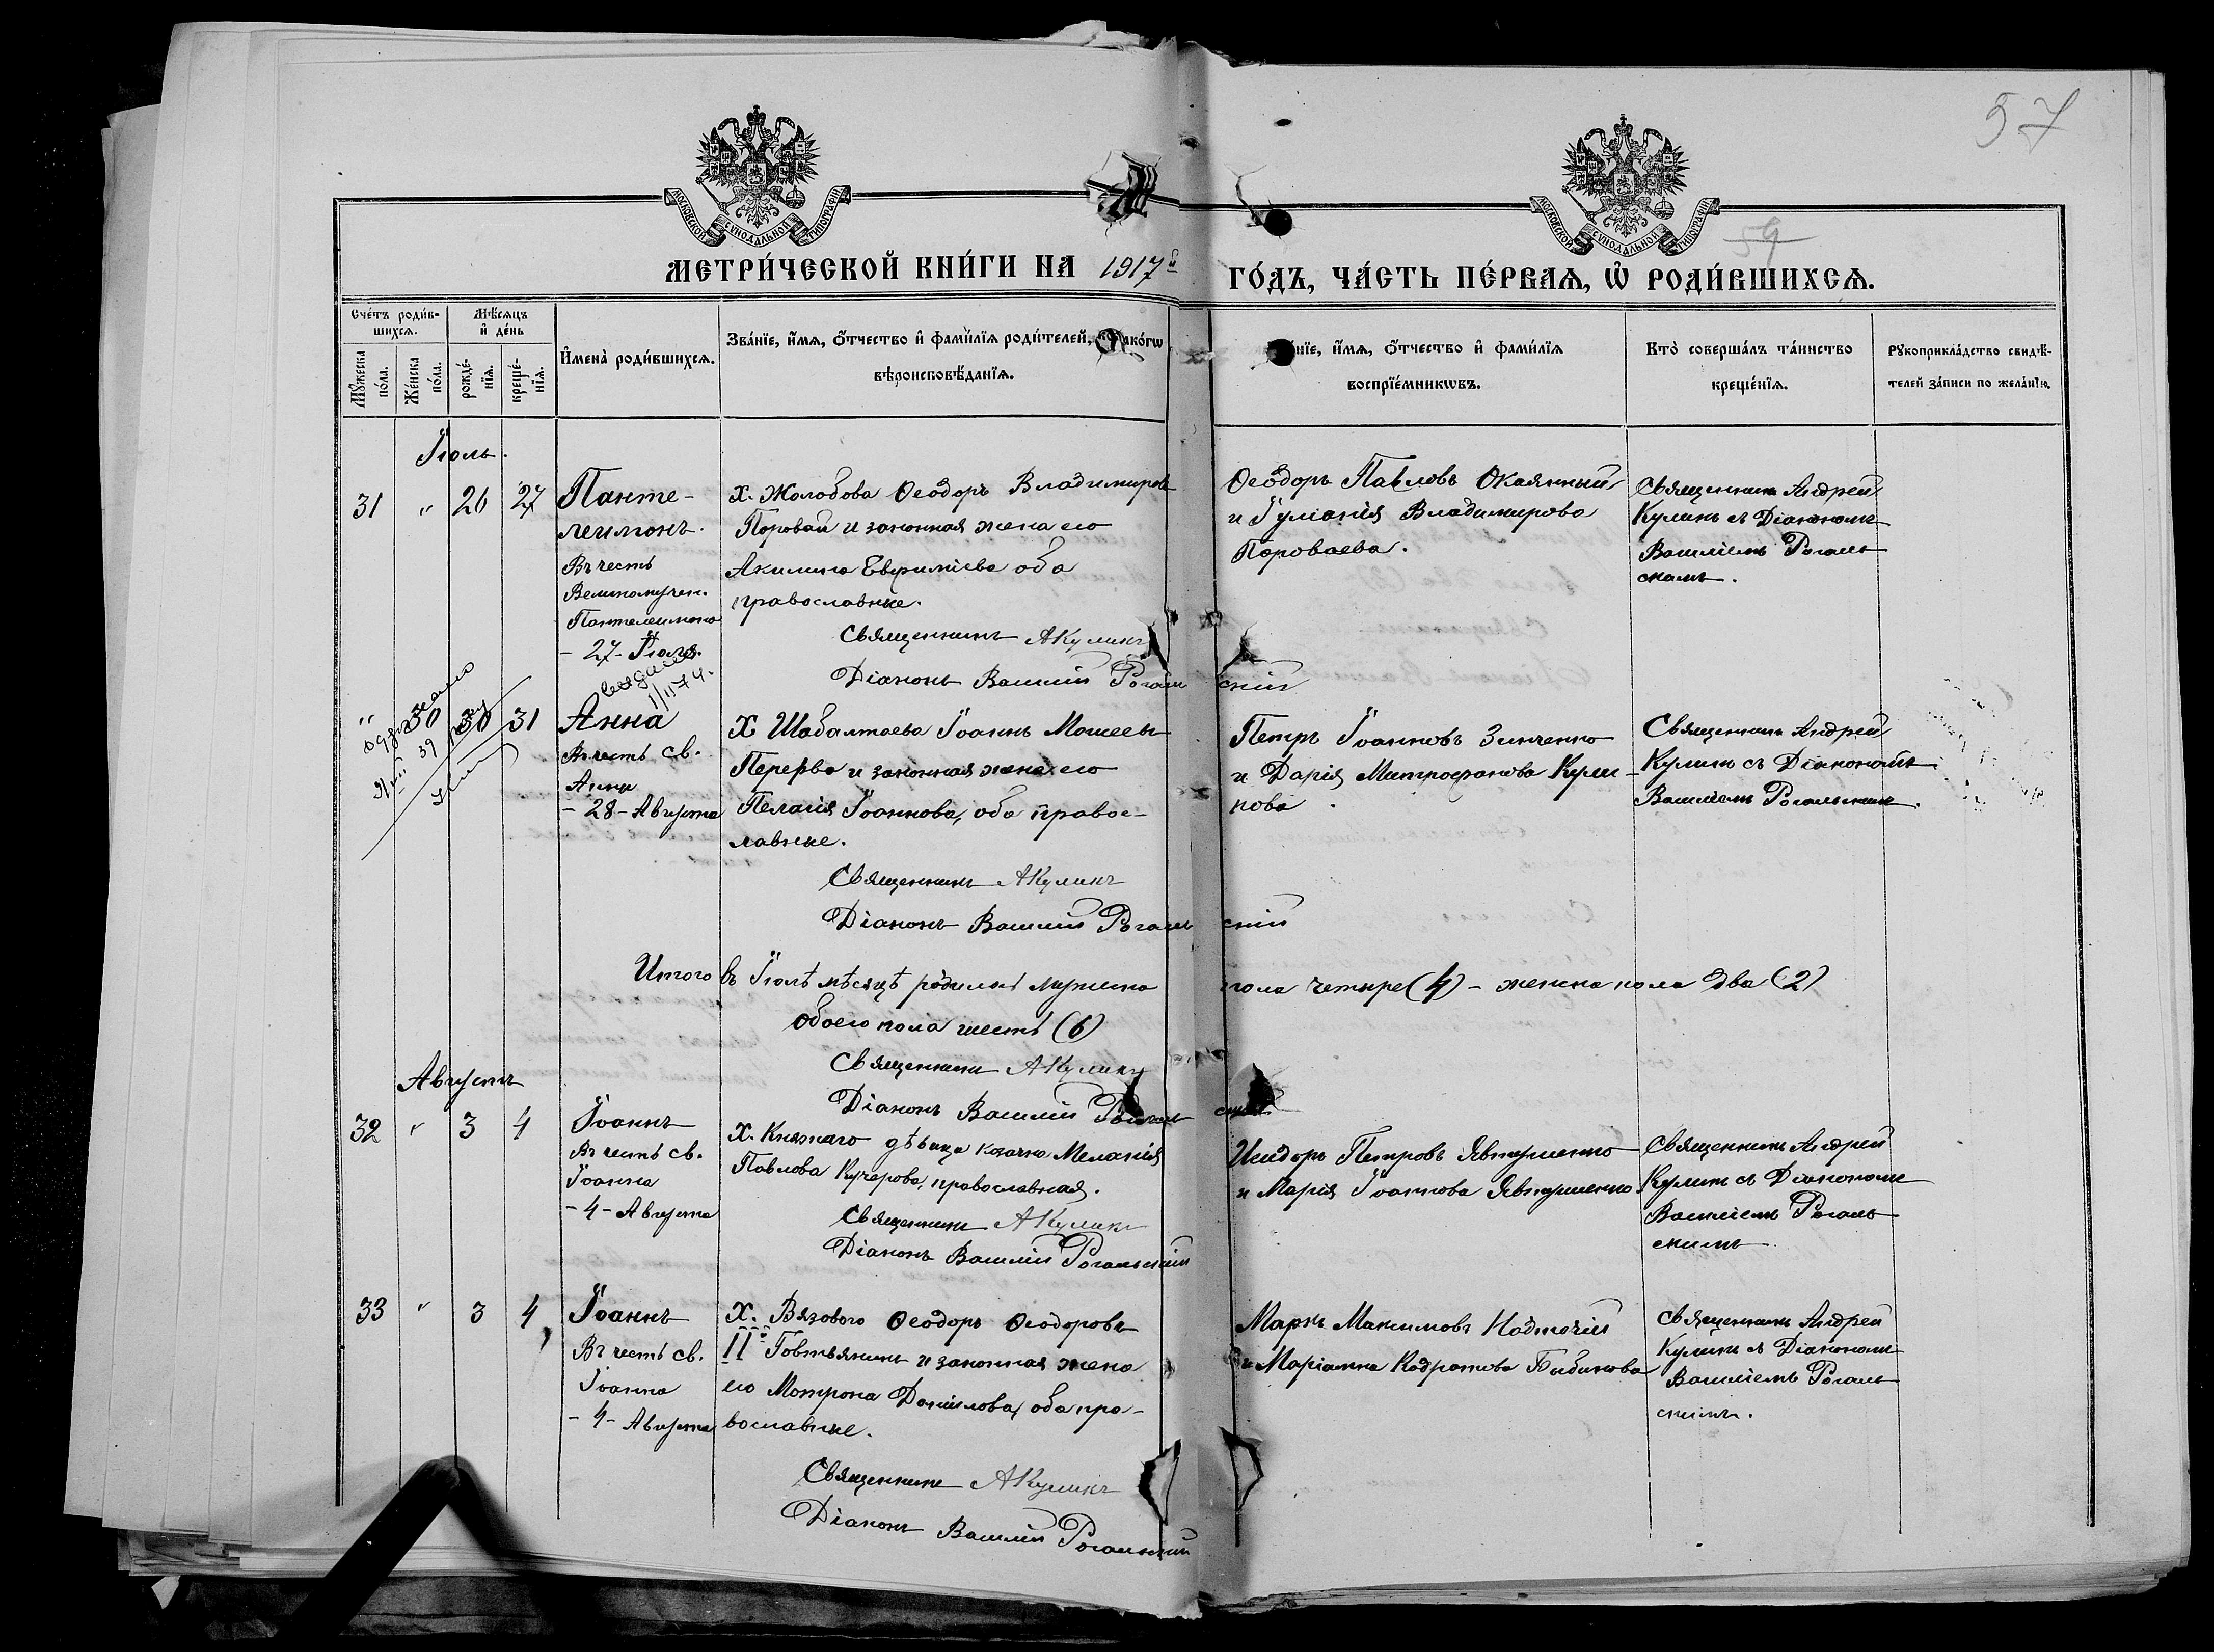 57
59
МОСКОВСКОЙ СѴНОДАЛЬНОЙ ТИПОГРАФІИ
МОСКОВСКОЙ СѴНОДАЛЬНОЙ ТИПОГРАФІИ
МЕТРИ́ЧЕСКОЙ КНИ́ГИ НА 1917й ГО́ДЪ, ЧА́СТЬ ПЕ́РВАЯ, Ѡ҆ РОДИ́ВШИХСЯ.
Сче́тъ роди́в-
шихся.
Мѣ́сяцъ
и҆ де́нь
Мꙋ́жеска
по́ла.
Же́нска
по́ла.
рожде́-
нїя.
креще́-
нїя.
И҆мена̀ роди́вшихся.
Зва́нїе, и҆́мя, ѻ҆́тчество и҆ фами́лїя роди́телей,
вѣроисповѣ́данїя.
и҆́мя, ѻ҆́тчество и҆ фами́лїя
воспрїе́мникѡвъ.
Кто̀ соверша́лъ та́инство
креще́нїя.
Рꙋкоприкла́дство свидѣ́-
телей за́писи по жела́нїю.
Іюль.
31 " 26 27
Панте-
леимонъ.
Въ честь
Великомучен.
Пантелеимона
- 27 - Іюля.
х. Жолобова Ѳеодоръ Владимировъ
Поровай и законная жена его
Акилина Евфиміева оба
православные.
Священникъ АКуликъ
Діаконъ Василій Рогальскій
Ѳеодоръ Павловъ Окаянный
и Іуліанія Владимирова
Пороваева.
Священникъ Андрей
Куликъ съ Діакономъ
Василіемъ Рогаль
скимъ.
" 30 30 31
Анна
Въ честь св.
Анны
- 28 - Августа
Х Шабалтаева Іоаннъ Моисеевъ
Перерва и законная жена его
Пелагія Іоаннова, оба правос-
лавные.
Священникъ АКуликъ
Діаконъ Василій Рогальскій
Петръ Іоанновъ Зинченко
и Дарія Митрофанова Кули-
кова
Священникъ Андрей
Куликъ съ Діакономъ
Василіемъ Рогальскимъ.
Итого въ Іюлѣ мѣсяцѣ родилось мужеска пола четыре (4) - женска пола два (2)
обоего пола шесть (6)
Священникъ АКуликъ
Діаконъ Василій Рогальскій
Августъ
32 " 3 4
Іоаннъ
Въ честь св.
Іоанна
- 4 - Августа
х. Княжаго дѣвица козачка Меланія
Павлова Кучерова, православная.
Священникъ АКуликъ
Діаконъ Василій Рогальскій
Исидоръ Петровъ Явтушенко
и Марія Іоаннова Явтушенко
Священникъ Андрей
Куликъ съ Діакономъ
Василіемъ Рогаль
скимъ
33 " 3 4
Іоаннъ
Въ честь св.
Іоанна
- 4 - Августа
Х. Вязового Ѳеодоръ Ѳеодоровъ
IIй Говтвянинъ и законная жена
его Мотрона Даніилова, оба пра-
вославные.
Священникъ АКуликъ
Діаконъ Василій Рогальскій
Маркъ Максимовъ Надточій
и Маріамна Кодратова Бабикова
Священникъ Андрей
Куликъ съ Діакономъ
Василіемъ Рогаль
скимъ.